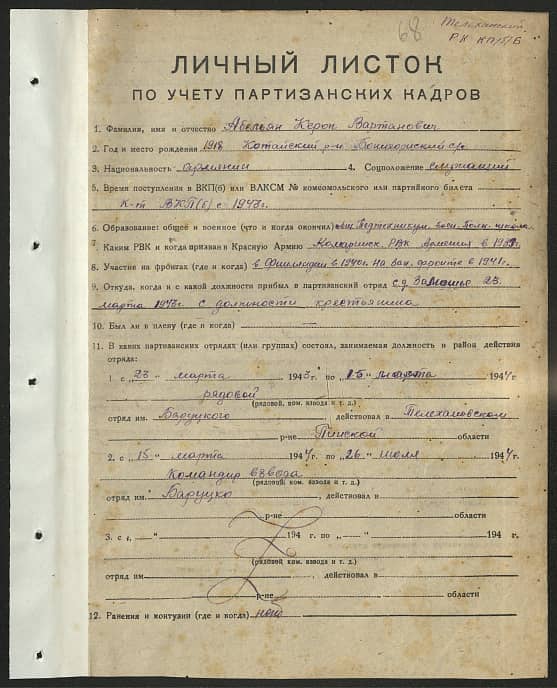 68
Телеханский
РК КП/б/Б
ЛИЧНЫЙ ЛИСТОК
ПО УЧЕТУ ПАРТИЗАНСКИХ КАДРОВ
1. Фамилия, имя и отчество Абельян Кероп Вартанович
2. Год и место рождения 1918 Котайский р-н
3. Национальность Армянин 4. Соцположение служащий
5. Время поступления в ВКП(б) или ВЛКСМ № комсомольского или партийного билета
К-т ВКП(б) с 1943г.
6. Образование: общее и военное (что и когда окончил) Педтехникум школа
7. Каким РВК и когда призван в Красную Армию РВК Армения в
8. Участие на фронтах (где и когда) в Финляндии в 1940г. на Зап. фронте в 1941г.
9. Откуда, когда и с какой должности прибыл в партизанский отряд с.д. 23
марта 1943г с должности крестьянина
10. Был ли в плену (где и когда)
11. В каких партизанских отрядах (или группах) состоял, занимаемая должность и район действия
отряда:
1. с „23" марта 1943г. по „15" марта 1944г
рядовой
(рядовой, ком. взвода и т. д.)
отряд им. Баруцкого действовал в Телехановском
р-не Пинской области
2. с „15" марта 1944г. по „26" июля 1944г.
Командир взвода
(рядовой, ком. взвода и т. д.)
отряд им. Баруцко , действовал в
р-не области
3. с „ " 194 г. по „ " 194 г.
(рядовой, ком. взвода и т. д.)
отряд им. действовал в
р-не области
12. Ранения и контузии (где и когда) нет